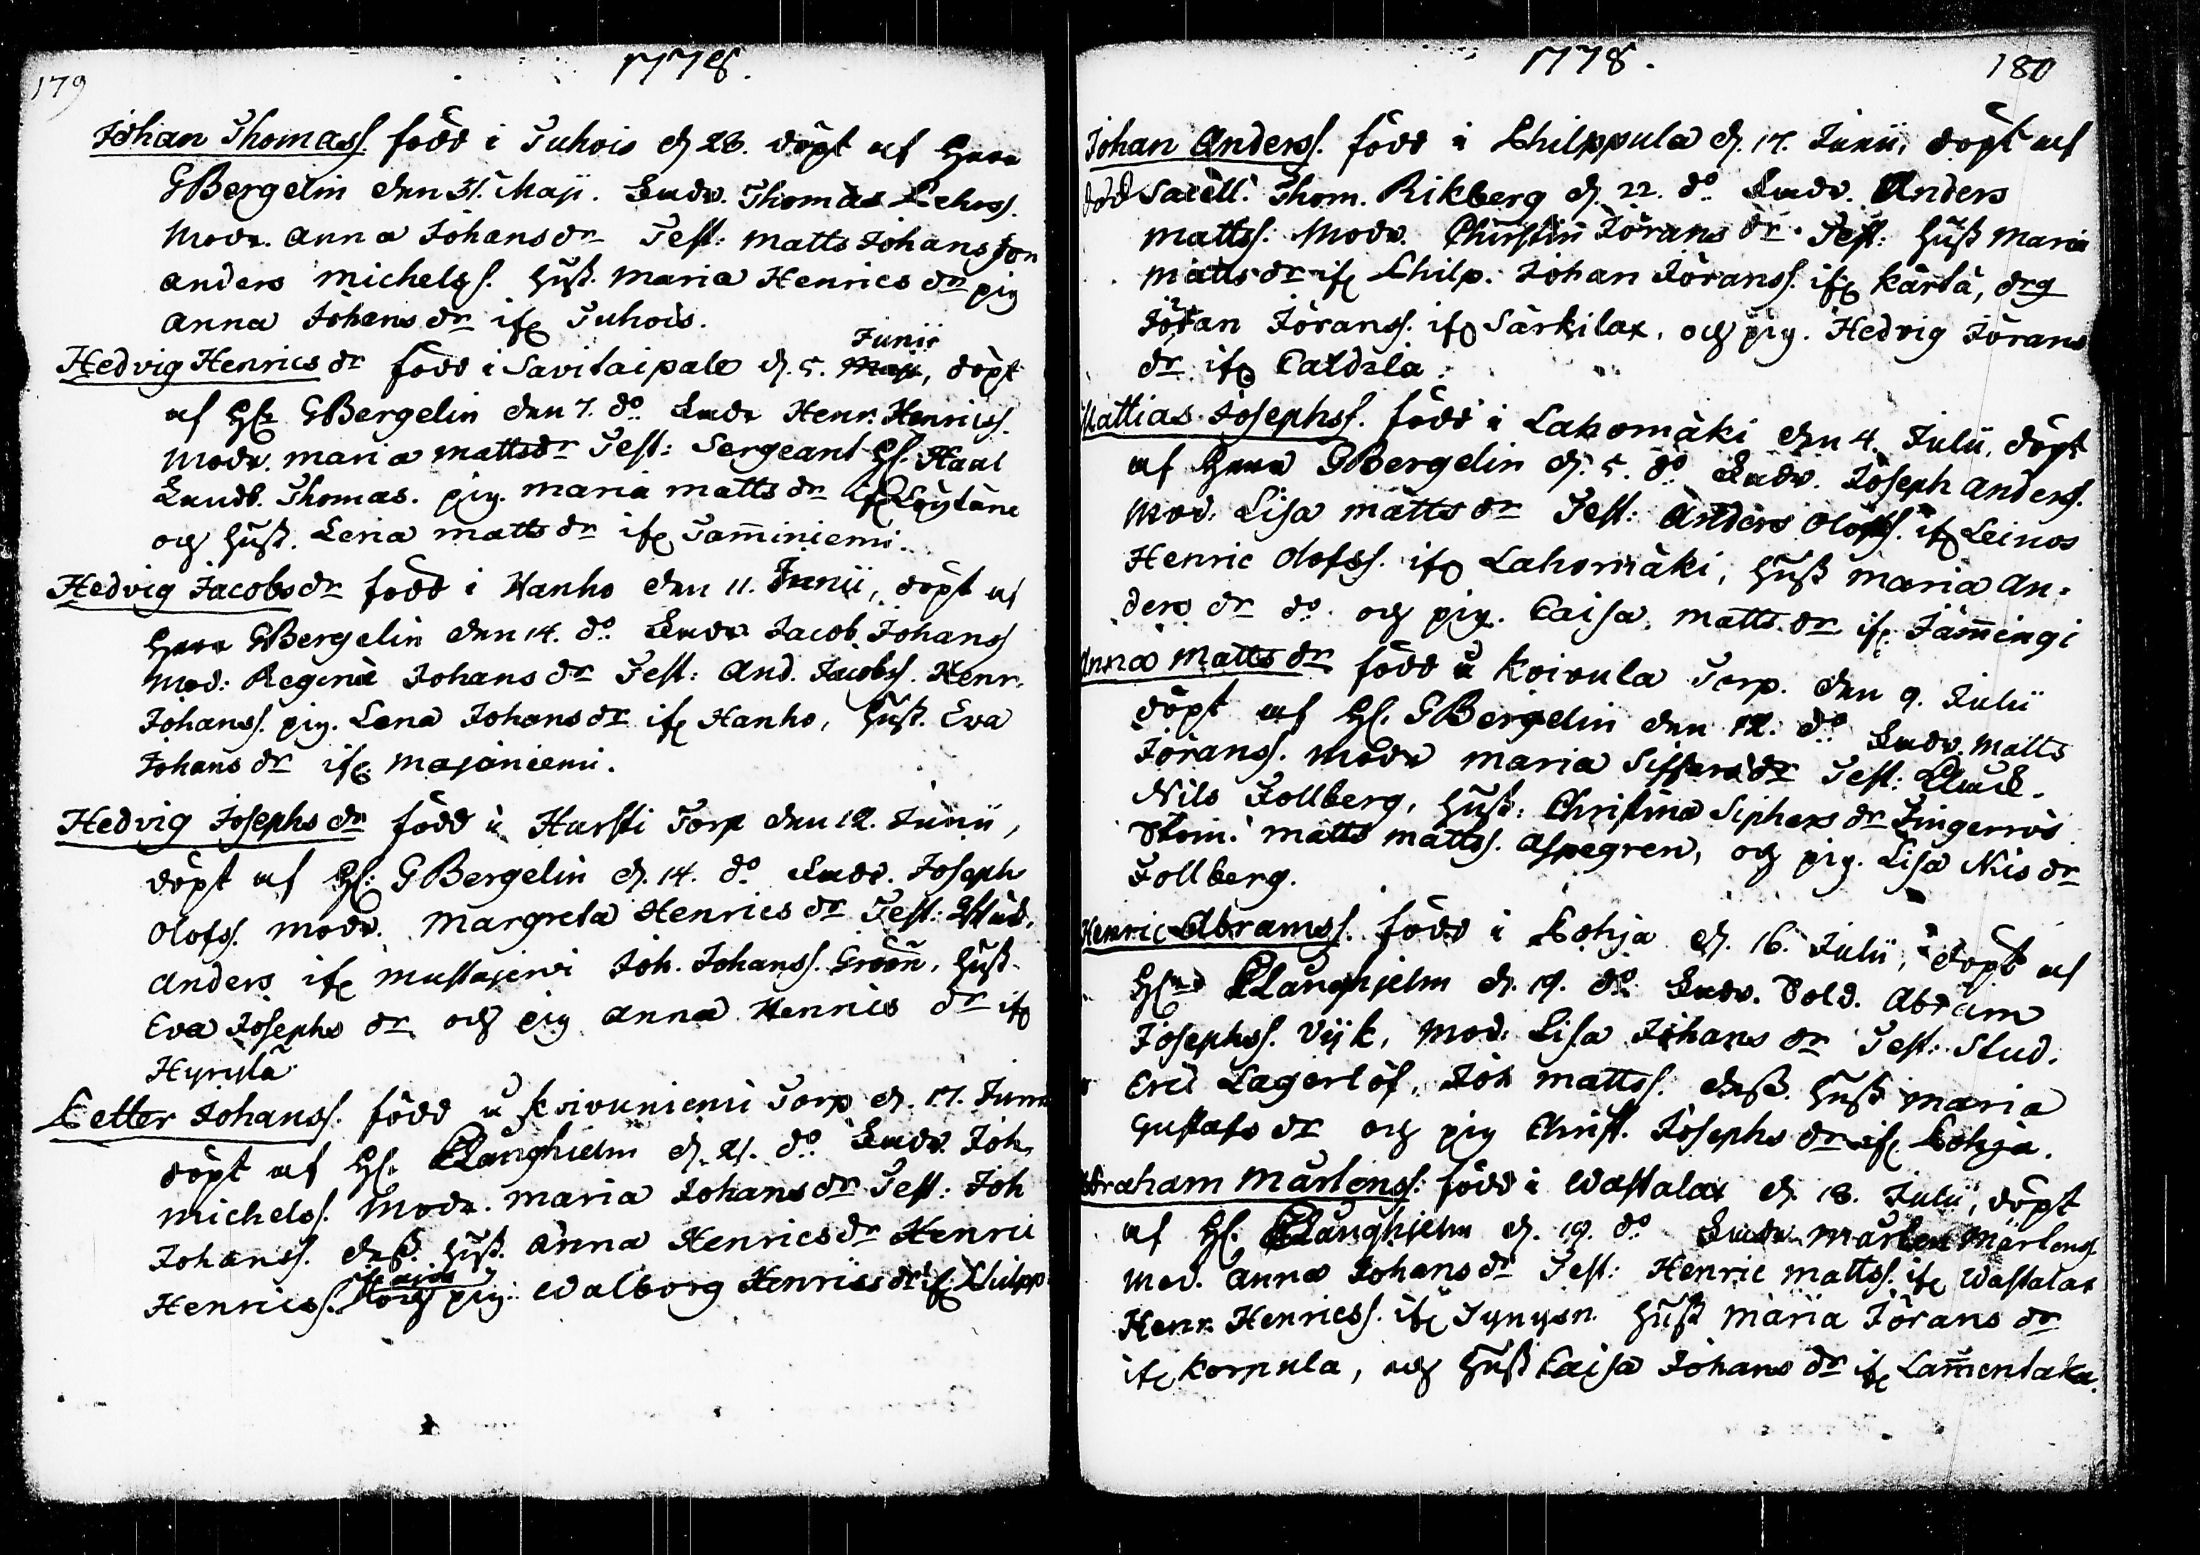 179
1778.
Johan Thomass. född i Tuhois d. 28. döpt af Herr
GBergelin den 31. Maji. Fadr. Thomas
Modr. Anna Johansdr Test: Matts Johansson
Anders Michelss. Hust. Maria Henricsdr pig
Anna Johansdr if. Tuhois.
Junii
Hedvig Henricsdr född i Savitaipale d. 5. Maji, döpt
af Hr GBergelin den 7. do Fadr Henr. Henricss.
Modr. Maria Mattsdr Test: Sergeant H.
Thomas. pig. Maria Mattsdr if
och Hust. Lena Mattsdr if. Tam̄iniemi.
Hedvig Jacobsdr född i Hanho den 11. Junii, döpt af
Herr GBergelin den 14. do Fadr Jacob Johanss
Mod: Regina Johansdr Test: And. Jacobss. Henr.
Johanss. pig. Lena Johansdr if. Hanho, Hust. Eva
Johansdr if. Majaniemi.
Hedvig Josephsdr född i Hursti Torp den 12. Junii,
döpt af H. GBergelin d. 14. do Fadr. Joseph
Olofss. Modr. Margreta Henricsdr Test:
Anders if. Mustajervi Joh. Johanss. Hust.
Eva Josephsdr och pig Anna Henricsdr if
Hyrylä
Petter Johanss. född i Koivuniemi Torp d. 17. Junii
döpt af H. Langhielm d. 21. do Fadr. Joh.
Michelss. Modr. Maria Johansdr Test: Joh
Johanss. Hust. Anna Henricsdr Henric
Henricss. och pig. Walborg Henricsdr if.
1778.
180
Johan Anderss. född i Philppula d. 17. Junii, döpt af
död Sacell. Thom. Rikberg d. 22. do Fadr. Anders
Mattss. Modr. Christin Jöransdr Test: Hust Maria
Mattsdr if. Philp. Johan Jöranss. if. Kärlä, drg
Jöran Jöranss. if. Särkilax, och pig. Hedvig Jörans
dr if.
Mattias Josephss. född i Lahomäki den 4. Julii, döpt
af Herr GBergelin d. 5. do Fadr. Joseph Anderss.
Mod: Lisa Mattsdr Test: Anders Olofss. if. Leinos
Henric Olofss. if. Lahomäki, Hust Maria An-
dersdr do och pig. Caisa Mattsdr if. Jäm̄ingi
Anna Mattsdr född i Koivula Torp. den 9. Julii
döpt af H. GBergelin den 12. do Fadr. Matts
Jöranss. Modr Maria Siffersdr Test:
Nils Follberg, Hust: Christina Siphersdr
Matts Mattss. Aspegren, och pig. Lisa Nisdr
Follberg.
Henric Abramss. född i Pohja d. 16. Julii, döpt af
Herr Langhjelm d. 19. do Fadr. Sold. Abram
Josephss. Vijk, Mod: Lisa Johansdr Test: Stud.
Eric Lagerlöf, Joh Mattss. Hust Maria
Gustafsdr och pig Christ. Josephsdr if. Pohja.
Abraham Mårtenss: född i Wastalax d. 18. Julii, döpt
af H. Langhjelm d. 19. do Fadr. Mårten Mårtenss
Mod. Anna Johansdr Test: Henric Mattss. if. Wastalax
Henr. Henricss. if. Tynysn. Hust Maria Jöransdr
if. Korpula, och Hust Caisa Johansdr if. Lam̄entaka.